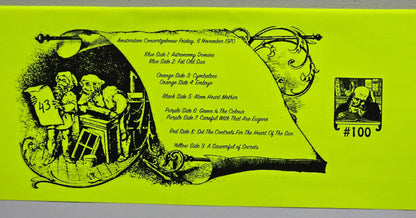 Amsterdam, Concertgebouw Friday, 6 November 1970
Blue Side 1: Astronomy Domine
Blue Side 2: Fat Old Sun
Orange Side 3: Cymbaline
Orange Side 4: Embryo
Black Side 5: Atom Heart Mother
Purple Side 6: Green Is The Colour
Purple Side 7: Careful With That Axe Eugene
Red Side 8: Set The Controls For The Heart Of The Sun
Yellow Side 9: A Saucerful of Secrets
43
#100